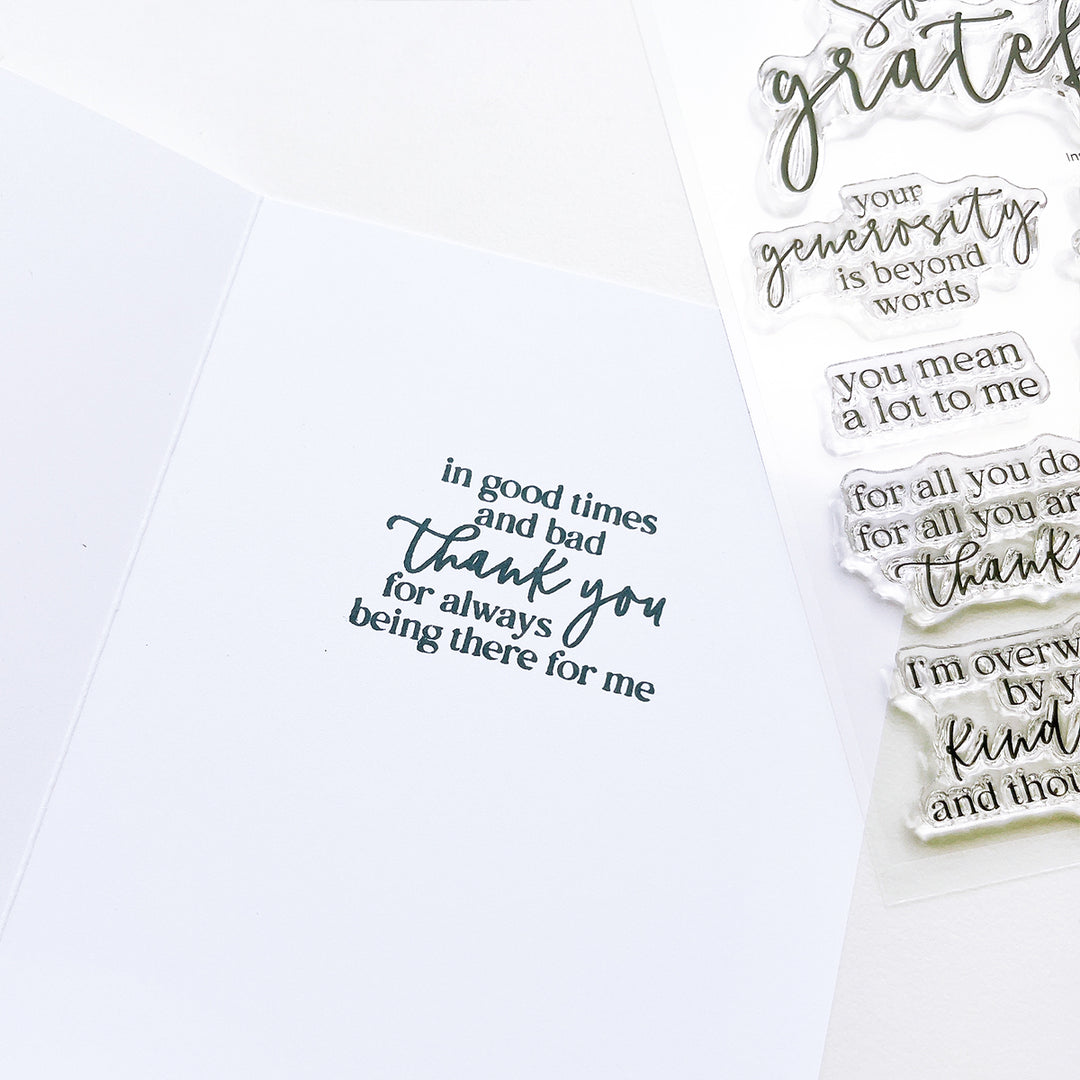 in good times
and bad
thank you
for always
being there for me
your
generosity
is beyond
words
you mean
a lot to me
for all you do
for all you
thank
I'm
by
and